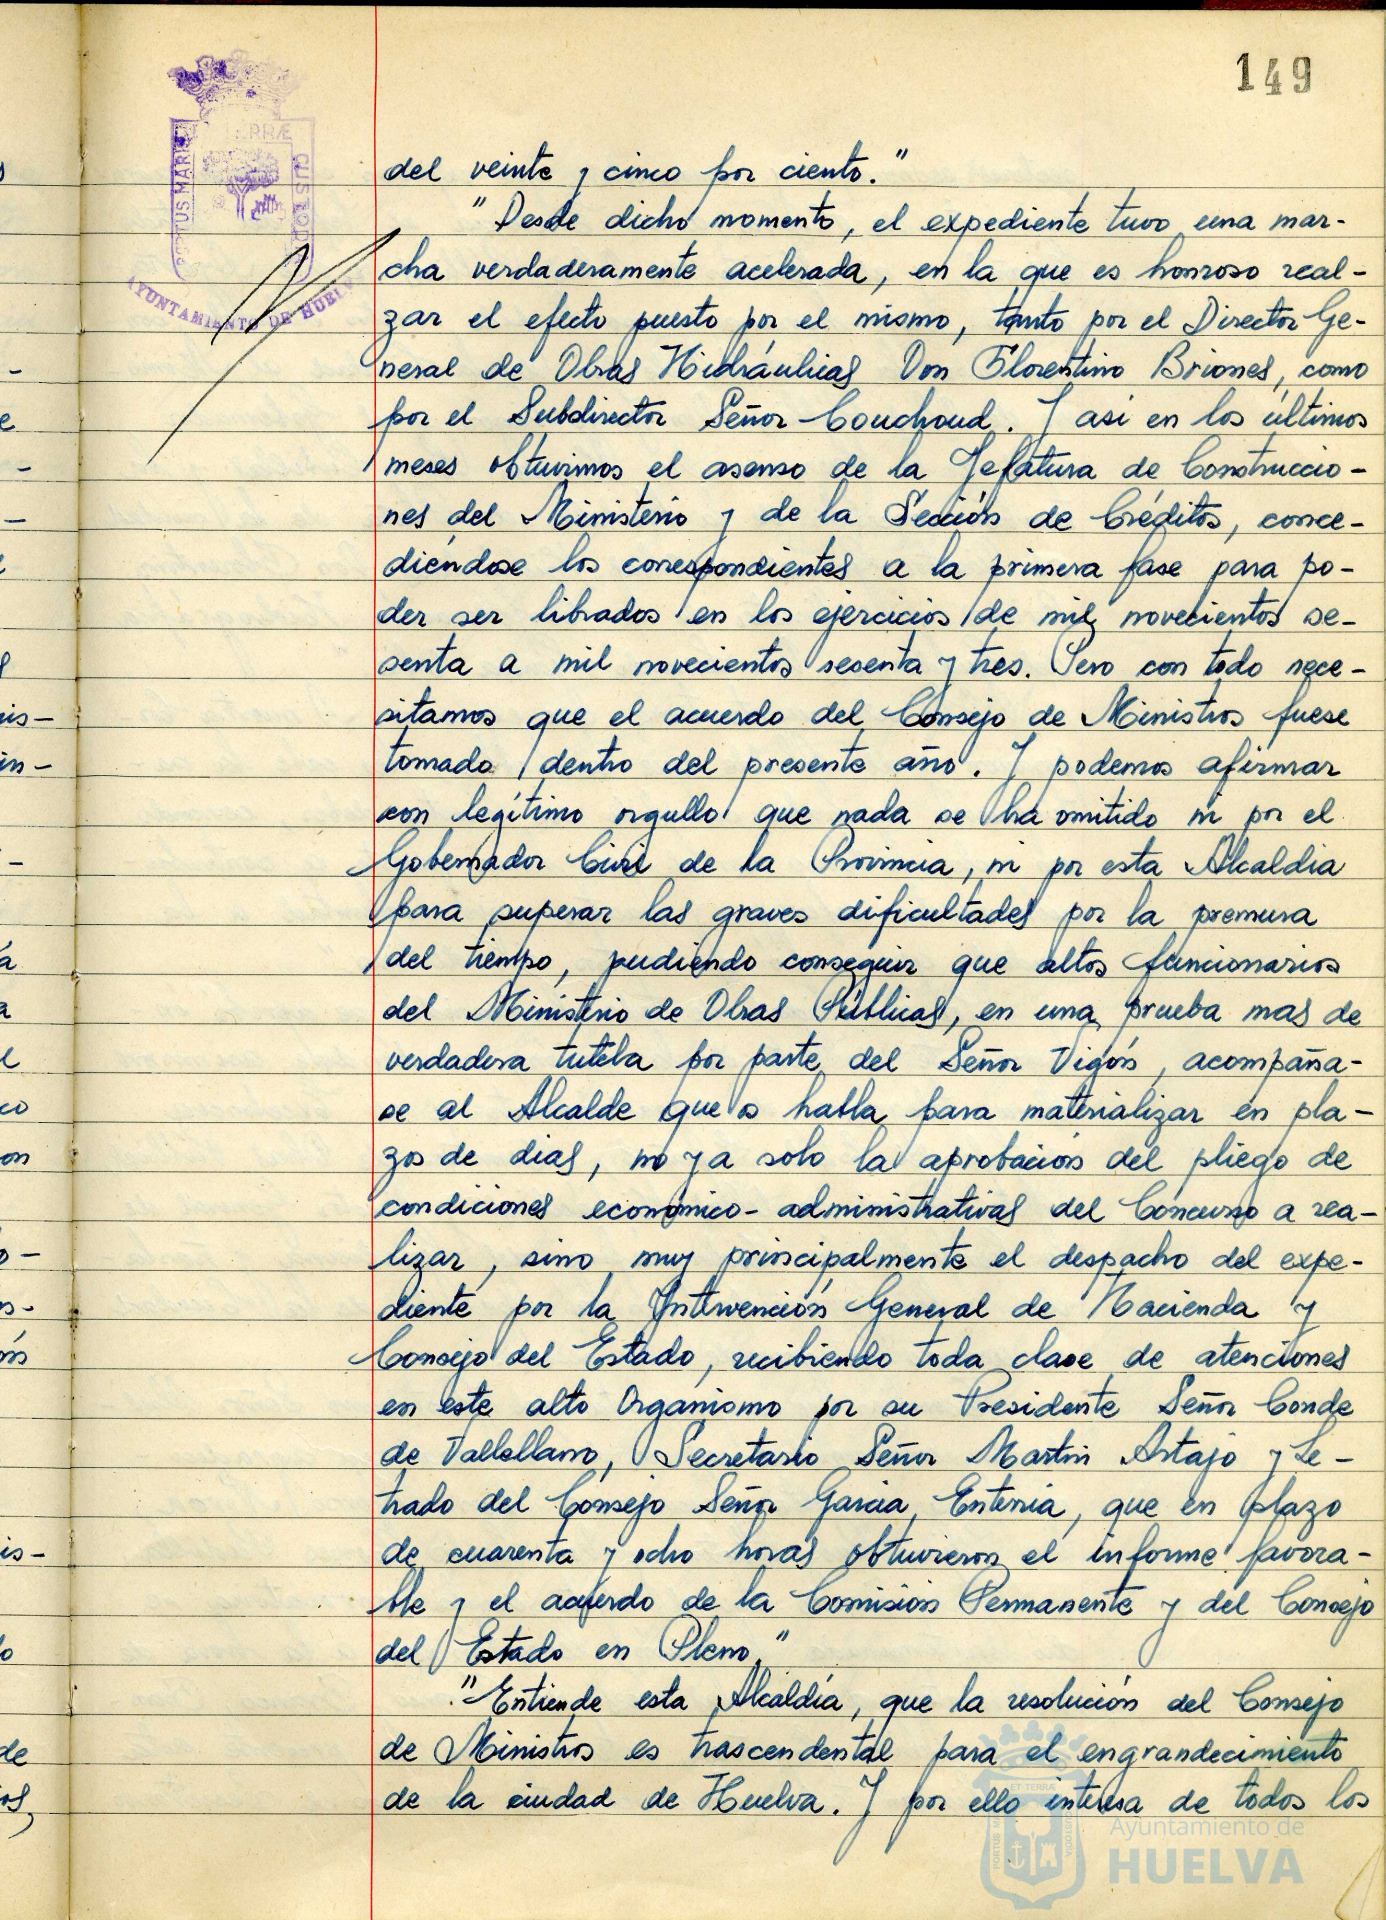 149
PORTUS MARIS ET TERRÆ CUSTODIA
AYUNTAMIENTO DE HUELVA
del veinte y cinco por ciento."
"Desde dicho momento, el expediente tuvo una mar-
cha verdaderamente acelerada, en la que es honroso real-
zar el efecto puesto por el mismo, tanto por el Director Ge-
neral de Obras Hidráulicas Don Florentino Briones, como
por el Subdirector Señor Couchoud. Y asi en los últimos
meses obtuvimos el asenso de la Jefatura de Construccio-
nes del Ministerio y de la Sección de Créditos, conce-
diéndose los correspondientes a la primera fase para po-
der ser librados en los ejercicios de mil novecientos se-
senta a mil novecientos sesenta y tres. Pero con todo nece-
sitamos que el acuerdo del Consejo de Ministros fuese
tomado dentro del presente año. Y podemos afirmar
con legítimo orgullo que nada se ha omitido ni por el
Gobernador Civil de la Provincia, ni por esta Alcaldia
para superar las graves dificultades por la premura
del tiempo, pudiendo conseguir que altos funcionarios
del Ministerio de Obras Públicas, en una prueba mas de
verdadera tutela por parte del Señor Vigón, acompaña-
se al Alcalde que os habla para materializar en pla-
zos de dias, no ya solo la aprobación del pliego de
condiciones económico-administrativas del Concurso a rea-
lizar, sino muy principalmente el despacho del expe-
diente por la Intervención General de Hacienda y
Consejo del Estado, recibiendo toda clase de atenciones
en este alto Organismo por su Presidente Señor Conde
de Vallellano, Secretario Señor Martin Artajo y Le-
trado del Consejo Señor Garcia Enterria, que en plazo
de cuarenta y ocho horas obtuvieron el informe favora-
ble y el acuerdo de la Comisión Permanente y del Consejo
del Estado en Pleno."
"Entiende esta Alcaldía, que la resolución del Consejo
de Ministros es trascendental para el engrandecimiento
de la ciudad de Huelva. Y por ello interesa de todos los
Ayuntamiento de
HUELVA